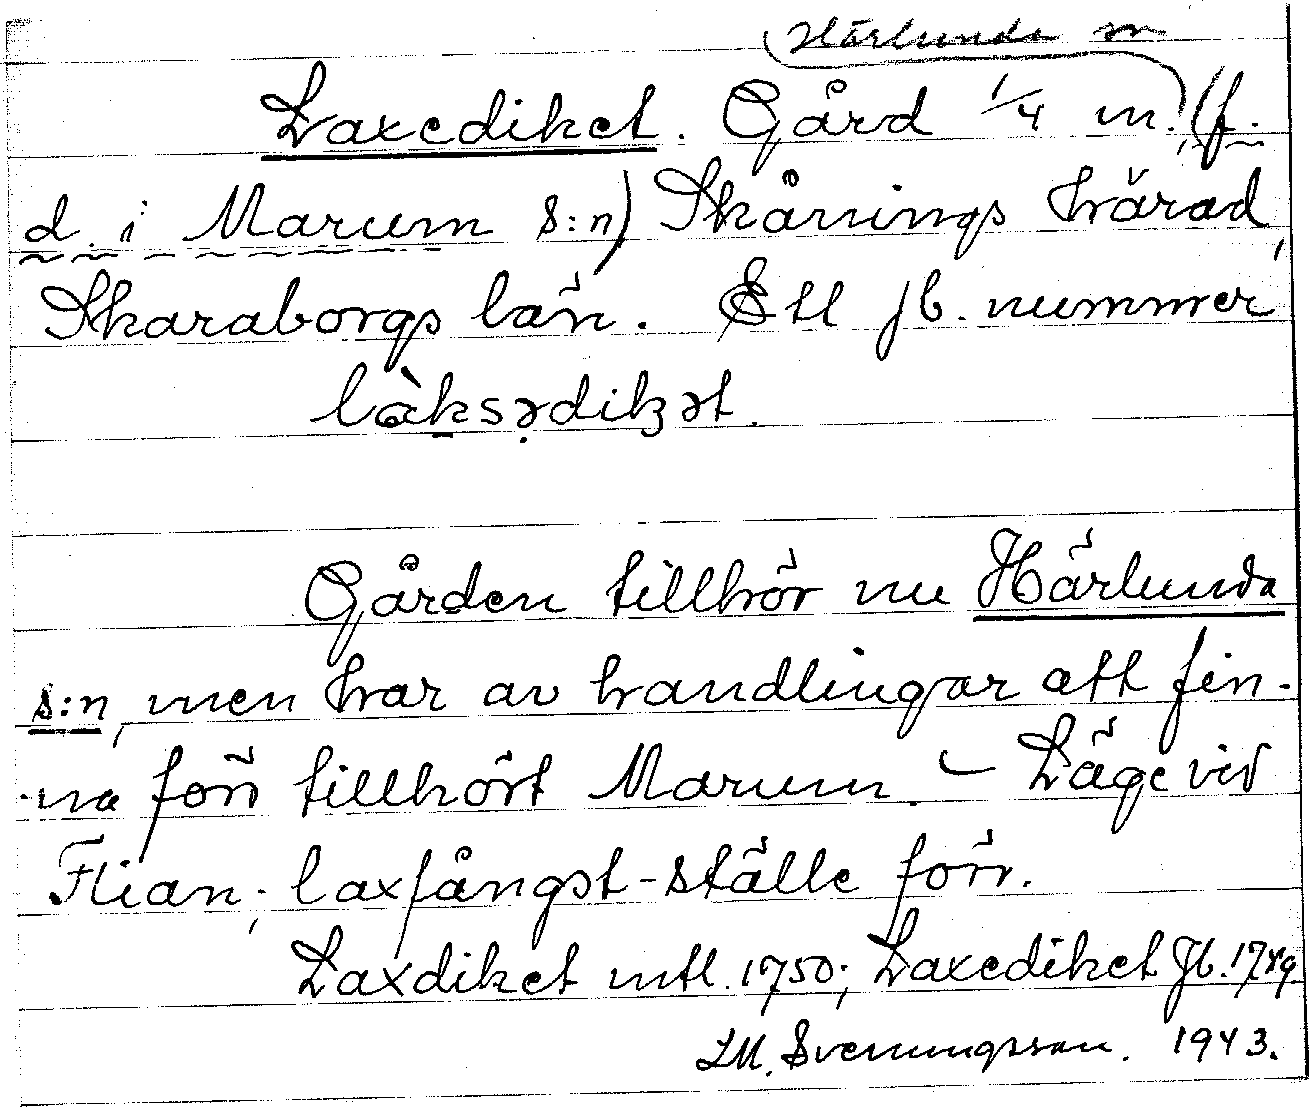 Härlunda sn
Laxediket. Gård 1/4 m. (f.
d. i Marum s:n) Skånings härad,
Skaraborgs län. Ett jb. nummer
làksədikət.
Gården tillhör nu Härlunda
s:n, men har av handlingar att fin-
na förr tillhört Marum. – Läge vid
Flian; laxfångst-ställe förr.
Laxdiket mtl. 1750; Laxediket Jb. 1789
LM. Svenungsson. 1943.